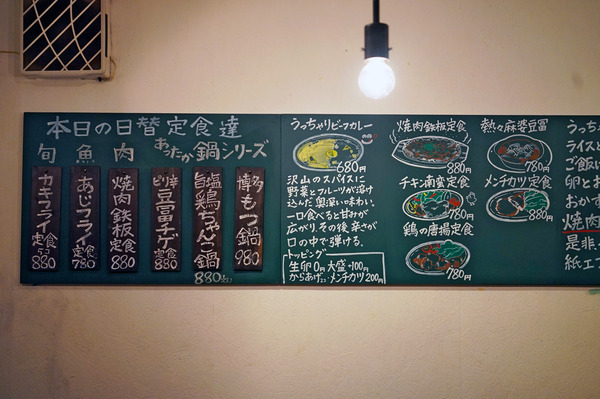 本日の日替定食達
旬 魚 肉 あったか鍋シリーズ
カキフライ定食 880
あじフライ定食 780
焼肉鉄板定食 880
ピリ辛 豆富チゲ定食 880
旨塩 鶏ちゃんこ鍋 880
博多もつ鍋 980
うっちゃりビーフカレー
680円
沢山のスパイスに
野菜とフルーツが溶け
込んだ奥深い味わい。
一口食べると甘みが
広がり、その後辛さが
口の中で弾ける。
トッピング
生卵0円 大盛+100円
からあげ2コ・メンチカツ200円
焼肉鉄板定食
880円
チキン南蛮定食
780円
鶏の唐揚定食
780円
熱々麻婆豆富
880円
メンチカツ定食
780円
うっち
ライスと
ご飯け
卵とお
おかず
焼肉
是非
紙エフ